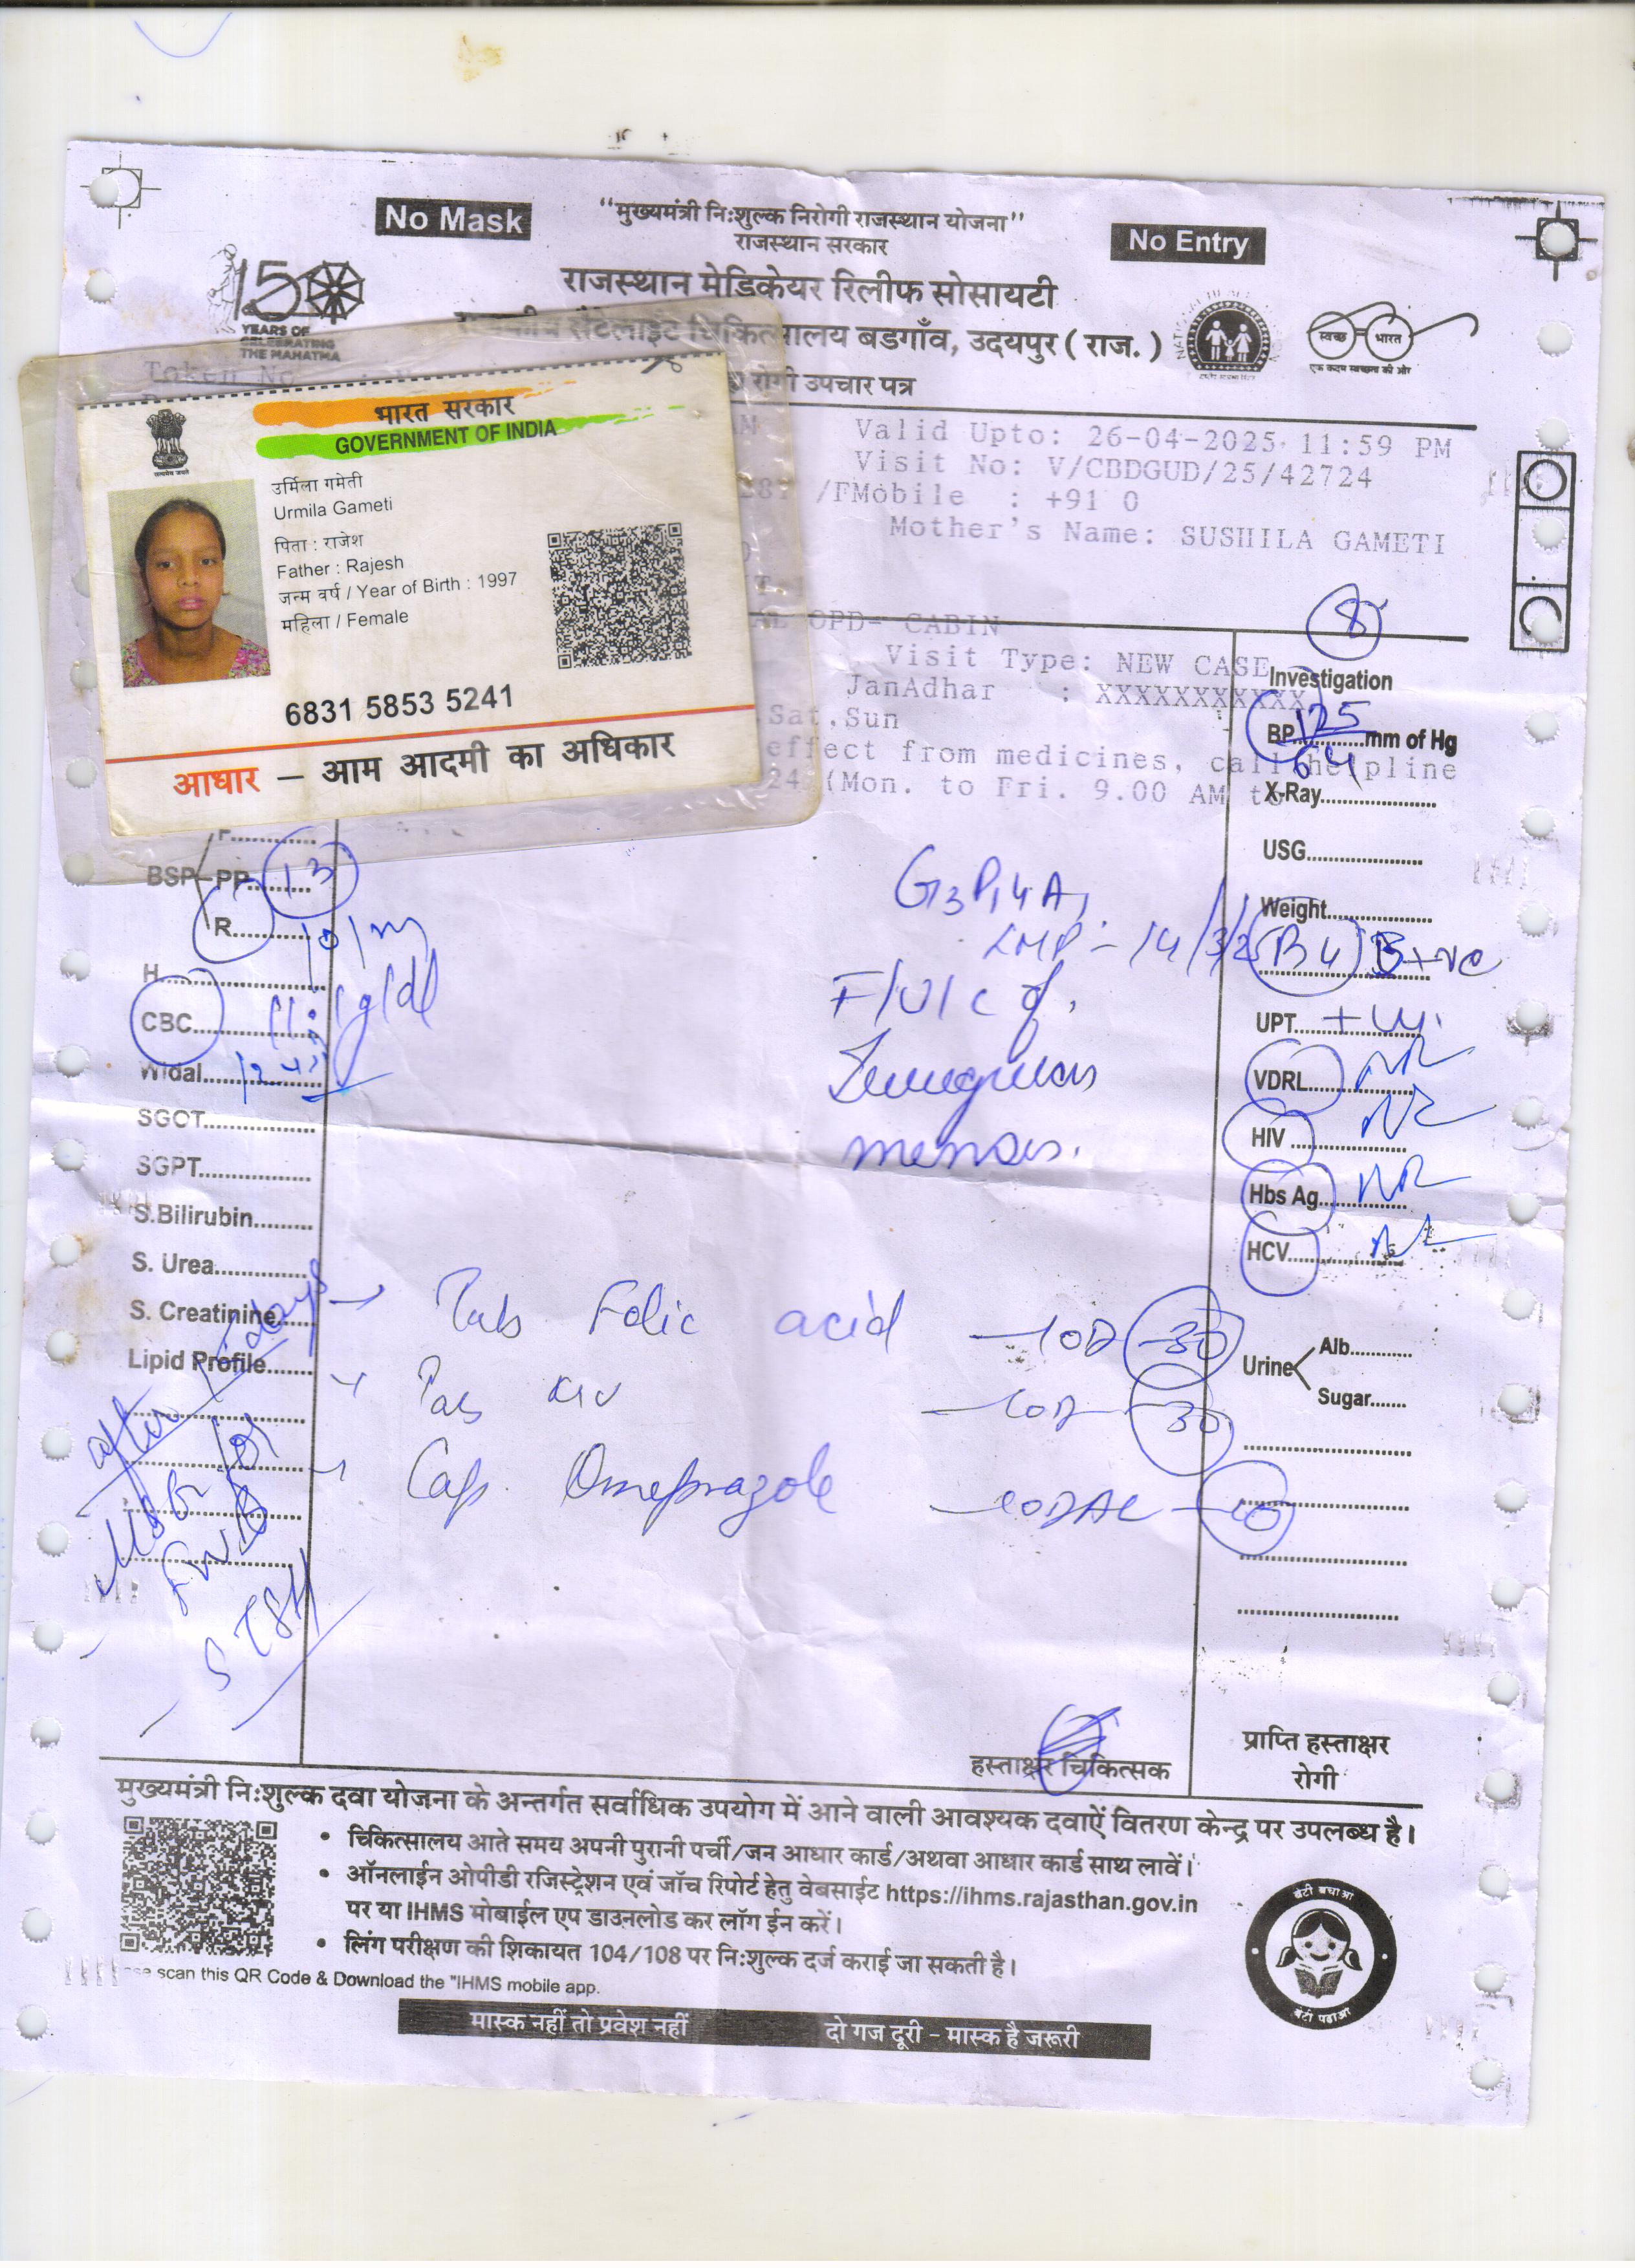 No Mask
"मुख्यमंत्री निःशुल्क निरोगी राजस्थान योजना"
No Entry
राजस्थान सरकार
राजस्थान मेडिकेयर रिलीफ सोसायटी
सैटेलाइट चिकित्सालय बडगाँव, उदयपुर ( राज. )
150
YEARS OF
CELEBRATING
THE MAHATMA
स्वच्छ भारत
एक कदम स्वच्छता की ओर
Token No
रोगी उपचार पत्र
भारत सरकार
GOVERNMENT OF INDIA
उर्मिला गमेती
Urmila Gameti
पिता : राजेश
Father : Rajesh
जन्म वर्ष / Year of Birth : 1997
महिला / Female
6831 5853 5241
आधार – आम आदमी का अधिकार
Valid Upto: 26-04-2025 11:59 PM
Visit No: V/CBDGUD/25/42724
/FMobile : +91 0
Mother's Name: SUSHILA GAMETI
OPD- CABIN
Visit Type: NEW CASE
JanAdhar : XXXXXXXXXXX
.Sat.Sun
effect from medicines, call helpline
24 (Mon. to Fri. 9.00 AM to
8
Investigation
BP 125/64 mm of Hg
X-Ray
USG
Weight
B+ve
UPT +
VDRL NR
HIV NR
Hbs Ag NR
HCV NR
Urine Alb
Sugar
F
BSP PP 13
R
H
CBC g/dl
Widal
SGOT
SGPT
S.Bilirubin
S. Urea
S. Creatinine
Lipid Profile
LMP - 14/3/25
menses.
Tab Folic acid - 1OD - 30
Tab - 1OD - 30
Cap. Omeprazole - 1OD AC - 10
after days
हस्ताक्षर चिकित्सक
प्राप्ति हस्ताक्षर
रोगी
मुख्यमंत्री निःशुल्क दवा योजना के अन्तर्गत सर्वाधिक उपयोग में आने वाली आवश्यक दवाऐं वितरण केन्द्र पर उपलब्ध है।
• चिकित्सालय आते समय अपनी पुरानी पर्ची/जन आधार कार्ड/अथवा आधार कार्ड साथ लावें।
• ऑनलाईन ओपीडी रजिस्ट्रेशन एवं जाँच रिपोर्ट हेतु वेबसाईट https://ihms.rajasthan.gov.in
पर या IHMS मोबाईल एप डाउनलोड कर लॉग ईन करें।
• लिंग परीक्षण की शिकायत 104/108 पर निःशुल्क दर्ज कराई जा सकती है।
scan this QR Code & Download the "IHMS mobile app.
बेटी बचाओ
बेटी पढाओ
मास्क नहीं तो प्रवेश नहीं दो गज दूरी - मास्क है जरूरी